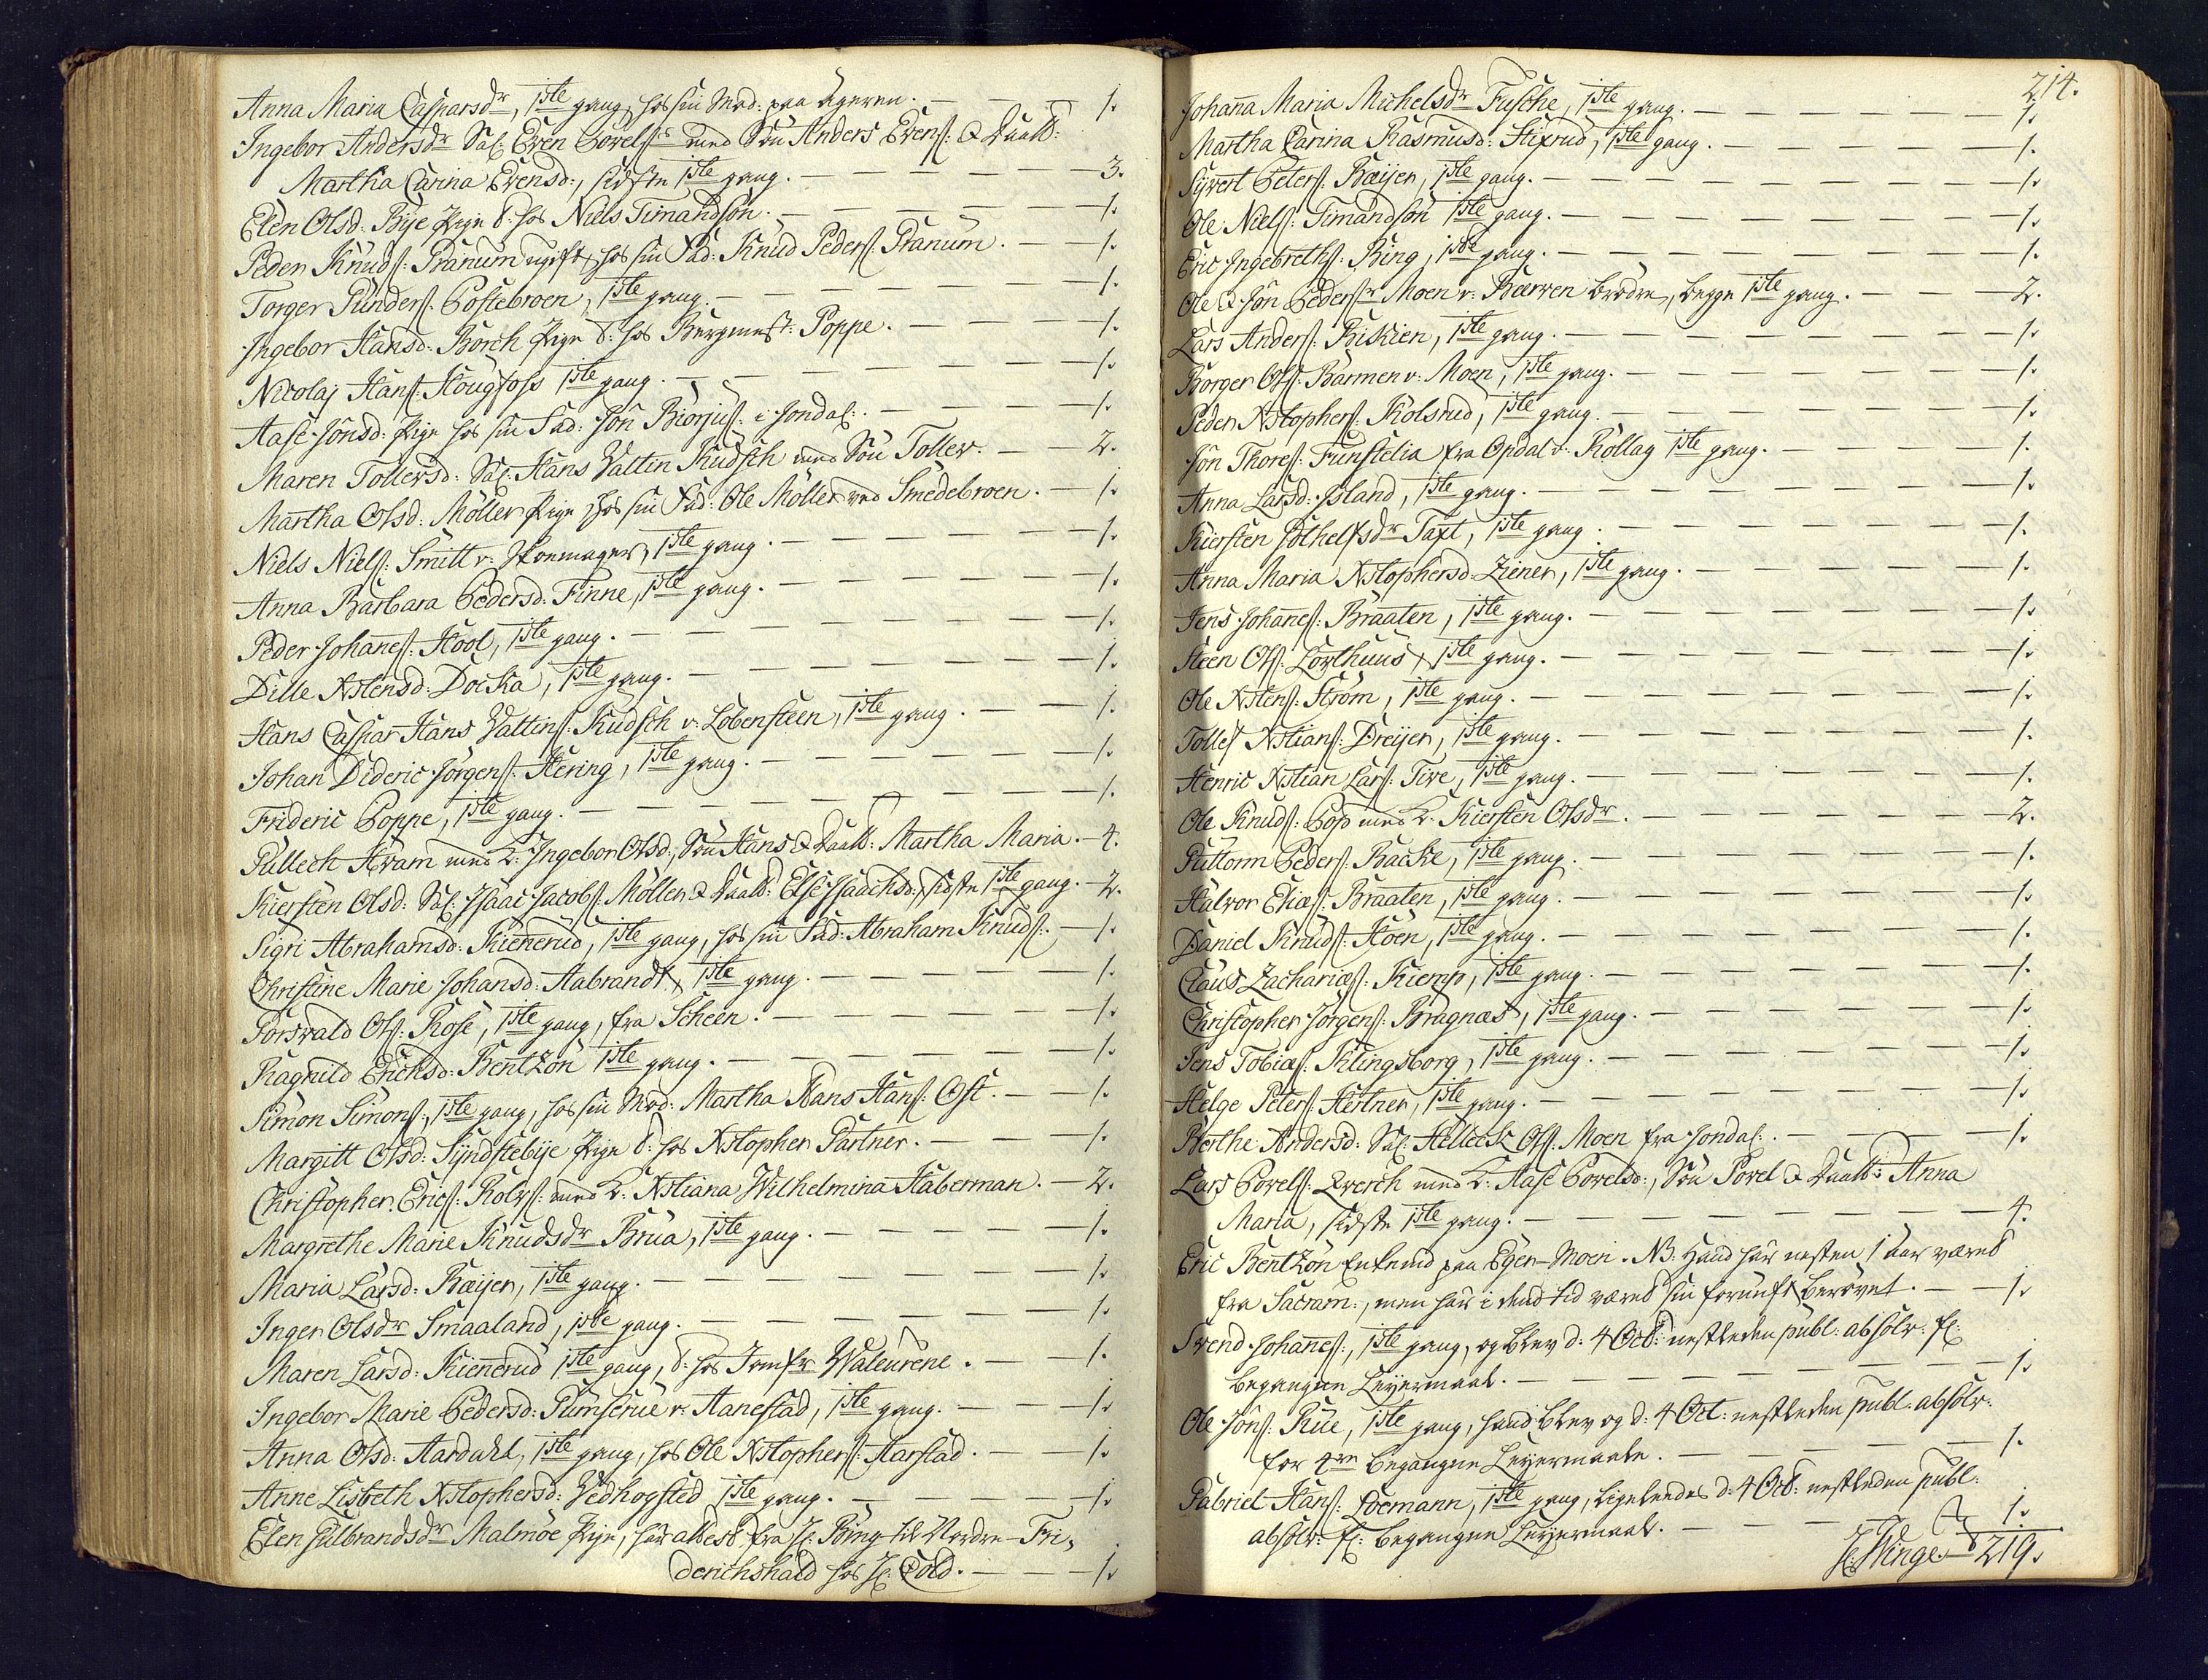 Anna Maria Casparsdr, 1ste gang, hos sin Mod: paa Ageren. — 1.
Ingebor Andersdr Sal: Even Povels: med Søn Anders Evens: & Daatt:
Martha Carina Evensd:, sidste 1ste gang. — 3.
Elen Olsd: Bije Pige t: hos Niels Timandsøn. — 1.
Peder Knuds: Granum ugift, hos sin Fad: Knud Peders: Granum. — 1.
Torger Gunders: Costebroen, 1ste gang. — 1.
Ingebor Hansd: Borch Pige t: hos Burgemest: Poppe. — 1.
Nicolaj Hans: Hougfoss 1ste gang. — 1.
Aase Jonsd: Pige hos sin Fad: Jon Biorjus: i Jondal. — 1.
Maren Tollevsd: Sal: Hans Valtin Kudsch med Søn Tollev. — 2.
Martha Olsd: Møller Pige hos sin Fad: Ole Møller ved Smedebroen. — 1.
Niels Niels: Smitt v: Skomager, 1ste gang. — 1.
Anna Barbara Pedersd: Finne, 1ste gang. — 1.
Peder Johanes: Hool, 1ste gang. — 1.
Dille Xstensd: Docka, 1ste gang. — 1.
Hans Caspar Hans Valtins: Kudsch v: Lobensteen, 1ste gang. — 1.
Johan Dideric Jørgens: Hering, 1ste gang. — 1.
Frideric Poppe, 1ste gang. — 1.
Gullech Hvam med K: Ingebor Olsd:, Søn Hans & Daatt: Martha Maria. — 4.
Kiersten Olsd: Sal: Isaac Jacobs: Møller & Daatt: Else Isaachsd:, sidste 1ste gang. — 2.
Sigri Abrahamsd: Kiennerud, 1ste gang, hos sin Fad: Abraham Knuds: — 1.
Christine Marie Johansd: Aabrandt, 1ste gang. — 1.
Torwald Ols: Rose, 1ste gang, fra Scheen. — 1.
Ragnild Erichsd: Bentzon 1ste gang. — 1.
Simon Simons:, 1ste gang, hos sin Mod: Martha Hans Hans: Ost. — 1.
Margitt Olsd: Syndstebije Pige t: hos Xstopher Partner. — 1.
Christopher Erics: Rolss: med K: Xstiana Wilhelmina Haberman. — 2.
Margrethe Marie Knudsdr Brua, 1ste gang. — 1.
Maria Larsd: Bæijer, 1ste gang. — 1.
Inger Olsdr Smaaland, 1ste gang. — 1.
Maren Larsd: Kiennerud 1ste gang, t: hos Jomfr Waleurene. — 1.
Ingebor Marie Pedersd: Gumserue v: Hanestad, 1ste gang. — 1.
Anna Olsd: Aardahl, 1ste gang, hos Ole Xstophers: Harstad. — 1.
Anne Lisbeth Xstophersd: Vedhogsted 1ste gang. — 1.
Elen Gulbrandsdr Malmøe Pige, har attest fra Hr: Bing til Nordre-Fri,
derichshald hos Hr: Cold. — 1.
214.
Johana Maria Michelsdr Fusche, 1ste gang. — 1.
Martha Carina Rasmusd: Stixrud, 1ste gang. — 1.
Sywert Peters: Bæijer, 1ste gang. — 1.
Ole Niels: Timandsøn 1ste gang. — 1.
Eric Ingebreths: Bing, 1ste gang. — 1.
Ole & Jon Pedersr Moen v: Bærven brødre, begge 1ste gang. — 2.
Lars Anders: Biskien, 1ste gang. — 1.
Borger Ols: Barmen v: Moen, 1ste gang. — 1.
Peder Xstophers: Kolsrud, 1ste gang. — 1.
Jon Thores: Funstelia fra Opdal v: Rollag 1ste gang. — 1.
Anna Larsd: Island, 1ste gang. — 1.
Kiersten Pothelfsdr Taxt, 1ste gang. — 1.
Anna Maria Xstophersd: Ziener, 1ste gang. — 1.
Jens Johanes: Braaten, 1ste gang. — 1.
Steen Ols: Lovthuus, 1ste gang. — 1.
Ole Xstens: Strøm, 1ste gang. — 1.
Tollef Xstians: Dreijer, 1ste gang. — 1.
Henric Xstian Lars: Tive, 1ste gang. — 1.
Ole Knuds: Cop med K: Kiersten Olsdr. — 2.
Guttorm Peders: Backe, 1ste gang. — 1.
Halvor Elias: Braaten, 1ste gang. — 1.
Daniel Knuds: Hoen, 1ste gang. — 1.
Claus Zacharias: Kiemp, 1ste gang. — 1.
Christopher Jørgens: Bragnæs, 1ste gang. — 1.
Jens Tobias: Klingsborg, 1ste gang. — 1.
Helge Peters: Hertner, 1ste gang. — 1.
Berthe Andersd: Sal: Helleck Ols: Moen fra Jondal. — 1.
Lars Povels: Qverch med K: Aase Povelsd:, Søn Povel & Daatt: Anna
Maria, sidste 1ste gang. — 4.
Eric Bentzon Enkemd paa Eger-Moen. NB: Hand har nesten 1 Aar været
fra Sacram:, men har i dend tid været sin fornuft berøvet. — 1.
Svend Johanes:, 1ste gang, og blev d: 4 Oct: nestleden publ: absolv: for
begangen Leyermaal. — 1.
Ole Jons: Rue, 1ste gang, hand blev og d: 4 Oct: nestleden publ: absolv:
for 4re begangne Leyermaale. — 1.
Gabriel Hans: Loemann, 1ste gang, ligeledes d: 4 Oct: nestleden publ:
absolv: for begangen Leyermaal. — 1.
219.